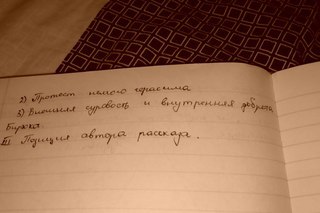 2) Протест немого Герасима
3) Внешняя суровость и внутренняя доброта
Бирюка
III Позиция автора рассказа.